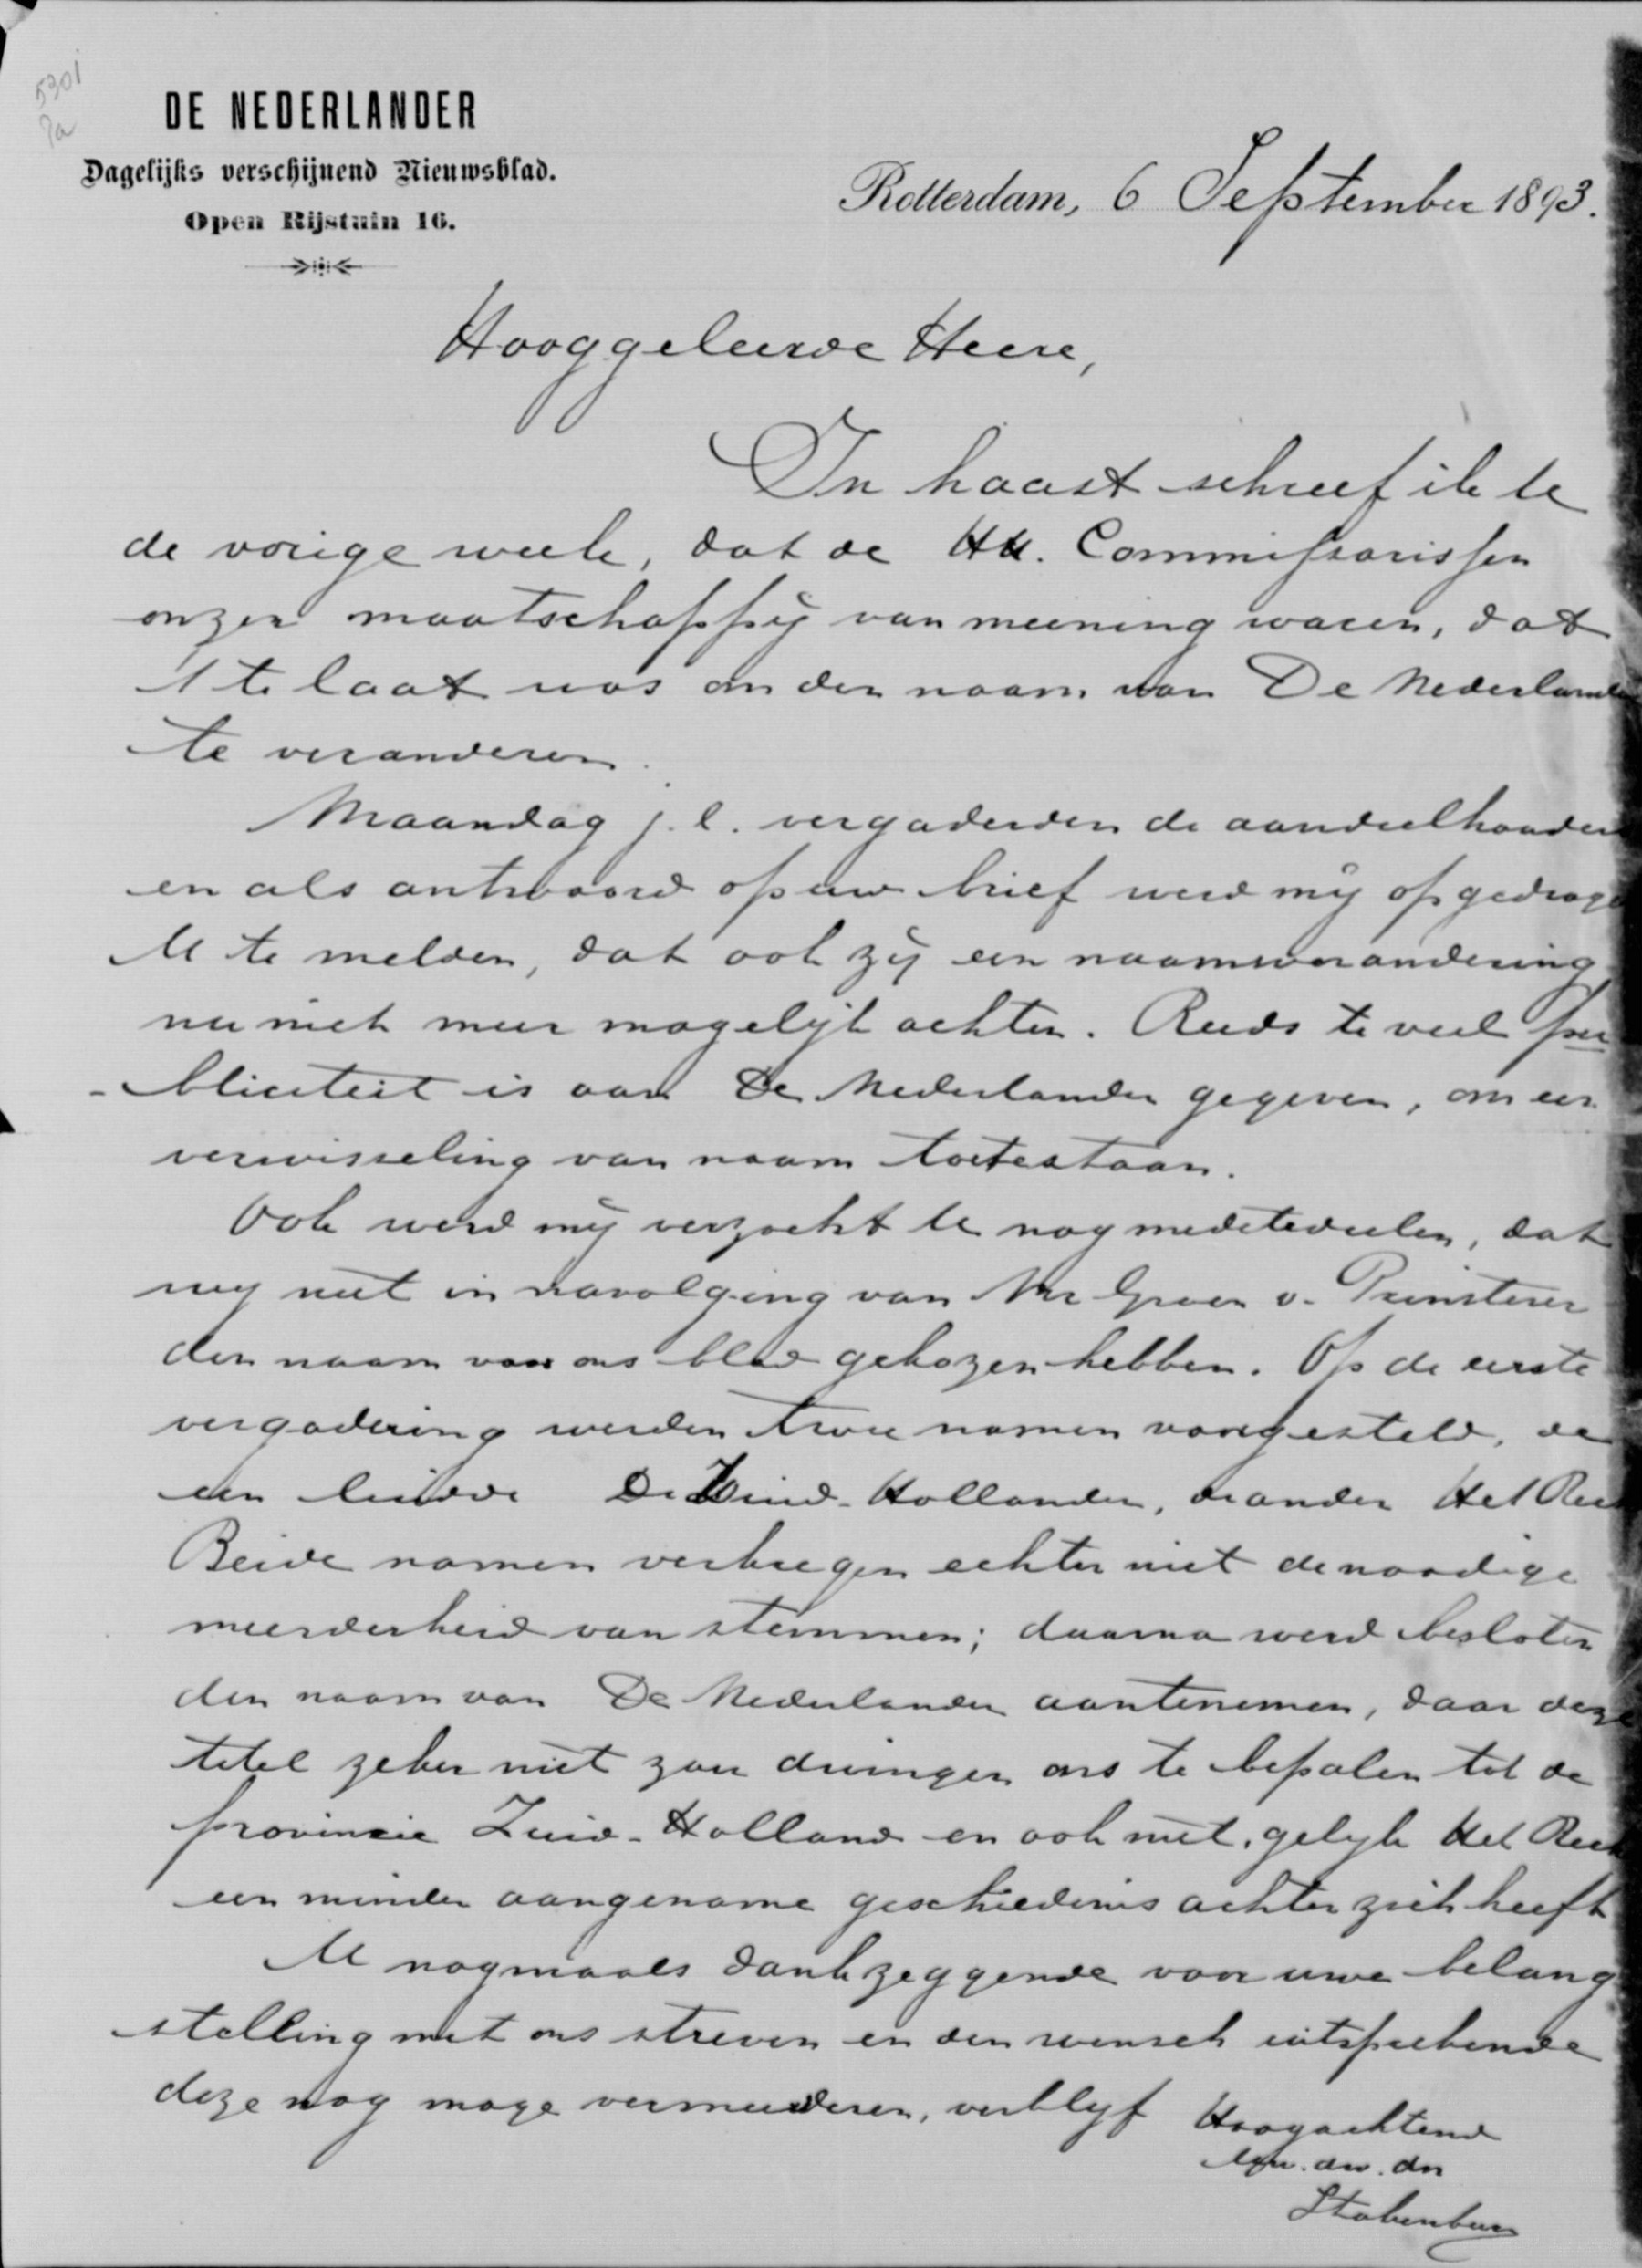 5301
DE NEDERLANDER
Dagelijks verschijnend Nieuwsblad.
Open Rijstuin 16.
Rotterdam, 6 September 1893.
Hooggeleerde Heere,
In haast schreef ik U
de vorige week, dat de HH. Commissarissen
onzer maatschappij van meening waren, dat
't te laat was om den naam van De Nederlander
te veranderen.
Maandag j.l. vergaderden de aandeelhouders
en als antwoord op uw brief werd mij opgedragen
U te melden, dat ook zij een naamsverandering
nu niet meer mogelijk achten. Reeds te veel pu
-bliciteit is aan De Nederlander gegeven, om een
verwisseling van naam toetestaan.
Ook werd mij verzocht U nog medetedeelen, dat
wij niet in navolging van Mr Groen v. Prinsterer
den naam van ons blad gekozen hebben. Op de eerste
vergadering werden twee namen voorgesteld, de
een luidde De Zuid-Hollander, de ander Het Recht
Beide namen verkregen echter niet de noodige
meerderheid van stemmen; daarna werd besloten
den naam van De Nederlander aantenemen, daar deze
titel zeker niet zou dwingen ons te bepalen tot de
provincie Zuid-Holland en ook niet, gelijk Het Recht
een minder aangename geschiedenis achter zich heeft
U nogmaals dankzeggende voor uwe belang
stelling met ons streven en den wensch uitsprekende
deze nog moge vermeerderen, verblijf Hoogachtend
Uw. dw. dn